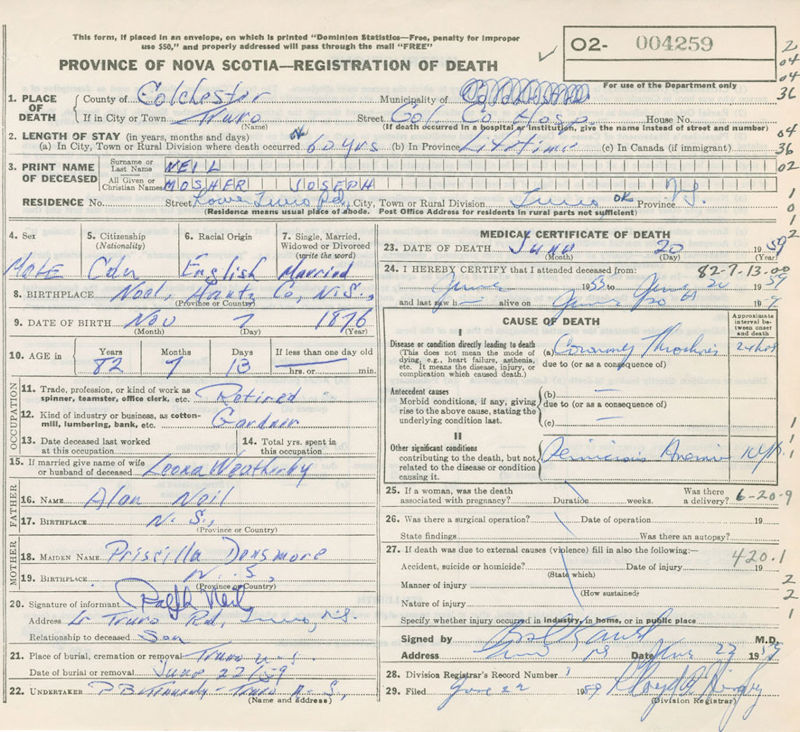 This form, if placed in an envelope, on which is printed "Dominion Statistics—Free, penalty for improper
use $50," and properly addressed will pass through the mail "FREE"
PROVINCE OF NOVA SCOTIA—REGISTRATION OF DEATH
02- 004259
For use of the Department only
2
04
04
36
04
36
02
1
0
1
2
1. PLACE OF DEATH
County of Colchester Municipality of
If in City or Town Truro Street Col. Co Hosp. House No.
(Name) (If death occurred in a hospital or institution, give the name instead of street and number)
2. LENGTH OF STAY (in years, months and days)
(a) In City, Town or Rural Division where death occurred 60 yrs (b) In Province Lifetime (c) In Canada (if immigrant)
3. PRINT NAME OF DECEASED
Surname or Last Name NEIL
All Given or Christian Names MOSHER JOSEPH
RESIDENCE No. Street Lower Truro Rd, City, Town or Rural Division Truro OK Province N.S.
(Residence means usual place of abode. Post Office Address for residents in rural parts not sufficient)
4. Sex
Male
5. Citizenship (Nationality)
Cdn
6. Racial Origin
English
7. Single, Married, Widowed or Divorced (write the word)
Married
8. BIRTHPLACE Noel, Hants Co, N.S.,
(Province or Country)
9. DATE OF BIRTH Nov 7 1876
(Month) (Day) (Year)
10. AGE in
Years Months Days If less than one day old
82 7 13 hrs. or min.
OCCUPATION
11. Trade, profession, or kind of work as spinner, teamster, office clerk, etc. Retired
12. Kind of industry or business, as cotton-mill, lumbering, bank, etc. Gardner
13. Date deceased last worked at this occupation
14. Total yrs. spent in this occupation
15. If married give name of wife or husband of deceased Leona Weatherby
FATHER
16. NAME Alan Neil
17. BIRTHPLACE N.S.,
(Province or Country)
MOTHER
18. MAIDEN NAME Priscilla Densmore
19. BIRTHPLACE N.S,
(Province or Country)
20. Signature of informant Ralph Neil
Address Lr Truro Rd, Truro, N.S.
Relationship to deceased Son
21. Place of burial, cremation or removal Truro N.S.
Date of burial or removal June 22/59
22. UNDERTAKER Truro N.S,
(Name and address)
MEDICAL CERTIFICATE OF DEATH
23. DATE OF DEATH June 20 1959
(Month) (Day) (Year)
24. I HEREBY CERTIFY that I attended deceased from: 82-7-13.00
June 1953 to June 20 1959
and last saw h alive on June 20 19
CAUSE OF DEATH
Approximate interval between onset and death
I
Disease or condition directly leading to death
(This does not mean the mode of dying, e.g., heart failure, asthenia, etc. It means the disease, injury, or complication which caused death.)
(a) Coronary Thrombosis 24 hrs
due to (or as a consequence of)
Antecedent causes
Morbid conditions, if any, giving rise to the above cause, stating the underlying condition last.
(b) —
due to (or as a consequence of)
(c) —
II
Other significant conditions
contributing to the death, but not related to the disease or condition causing it.
Pernicious Anemia
1
1
1
25. If a woman, was the death associated with pregnancy? Duration weeks. Was there a delivery? 6-20-9
26. Was there a surgical operation? Date of operation 19
State findings Was there an autopsy?
27. If death was due to external causes (violence) fill in also the following:—
420.1
Accident, suicide or homicide? Date of injury 19
(State which)
2
Manner of injury
(How sustained)
2
Nature of injury
1
Specify whether injury occurred in industry, in home, or in public place
Signed by M.D.
Address Truro NS Date June 22 1959
28. Division Registrar's Record Number
29. Filed June 22 1959
(Division Registrar)